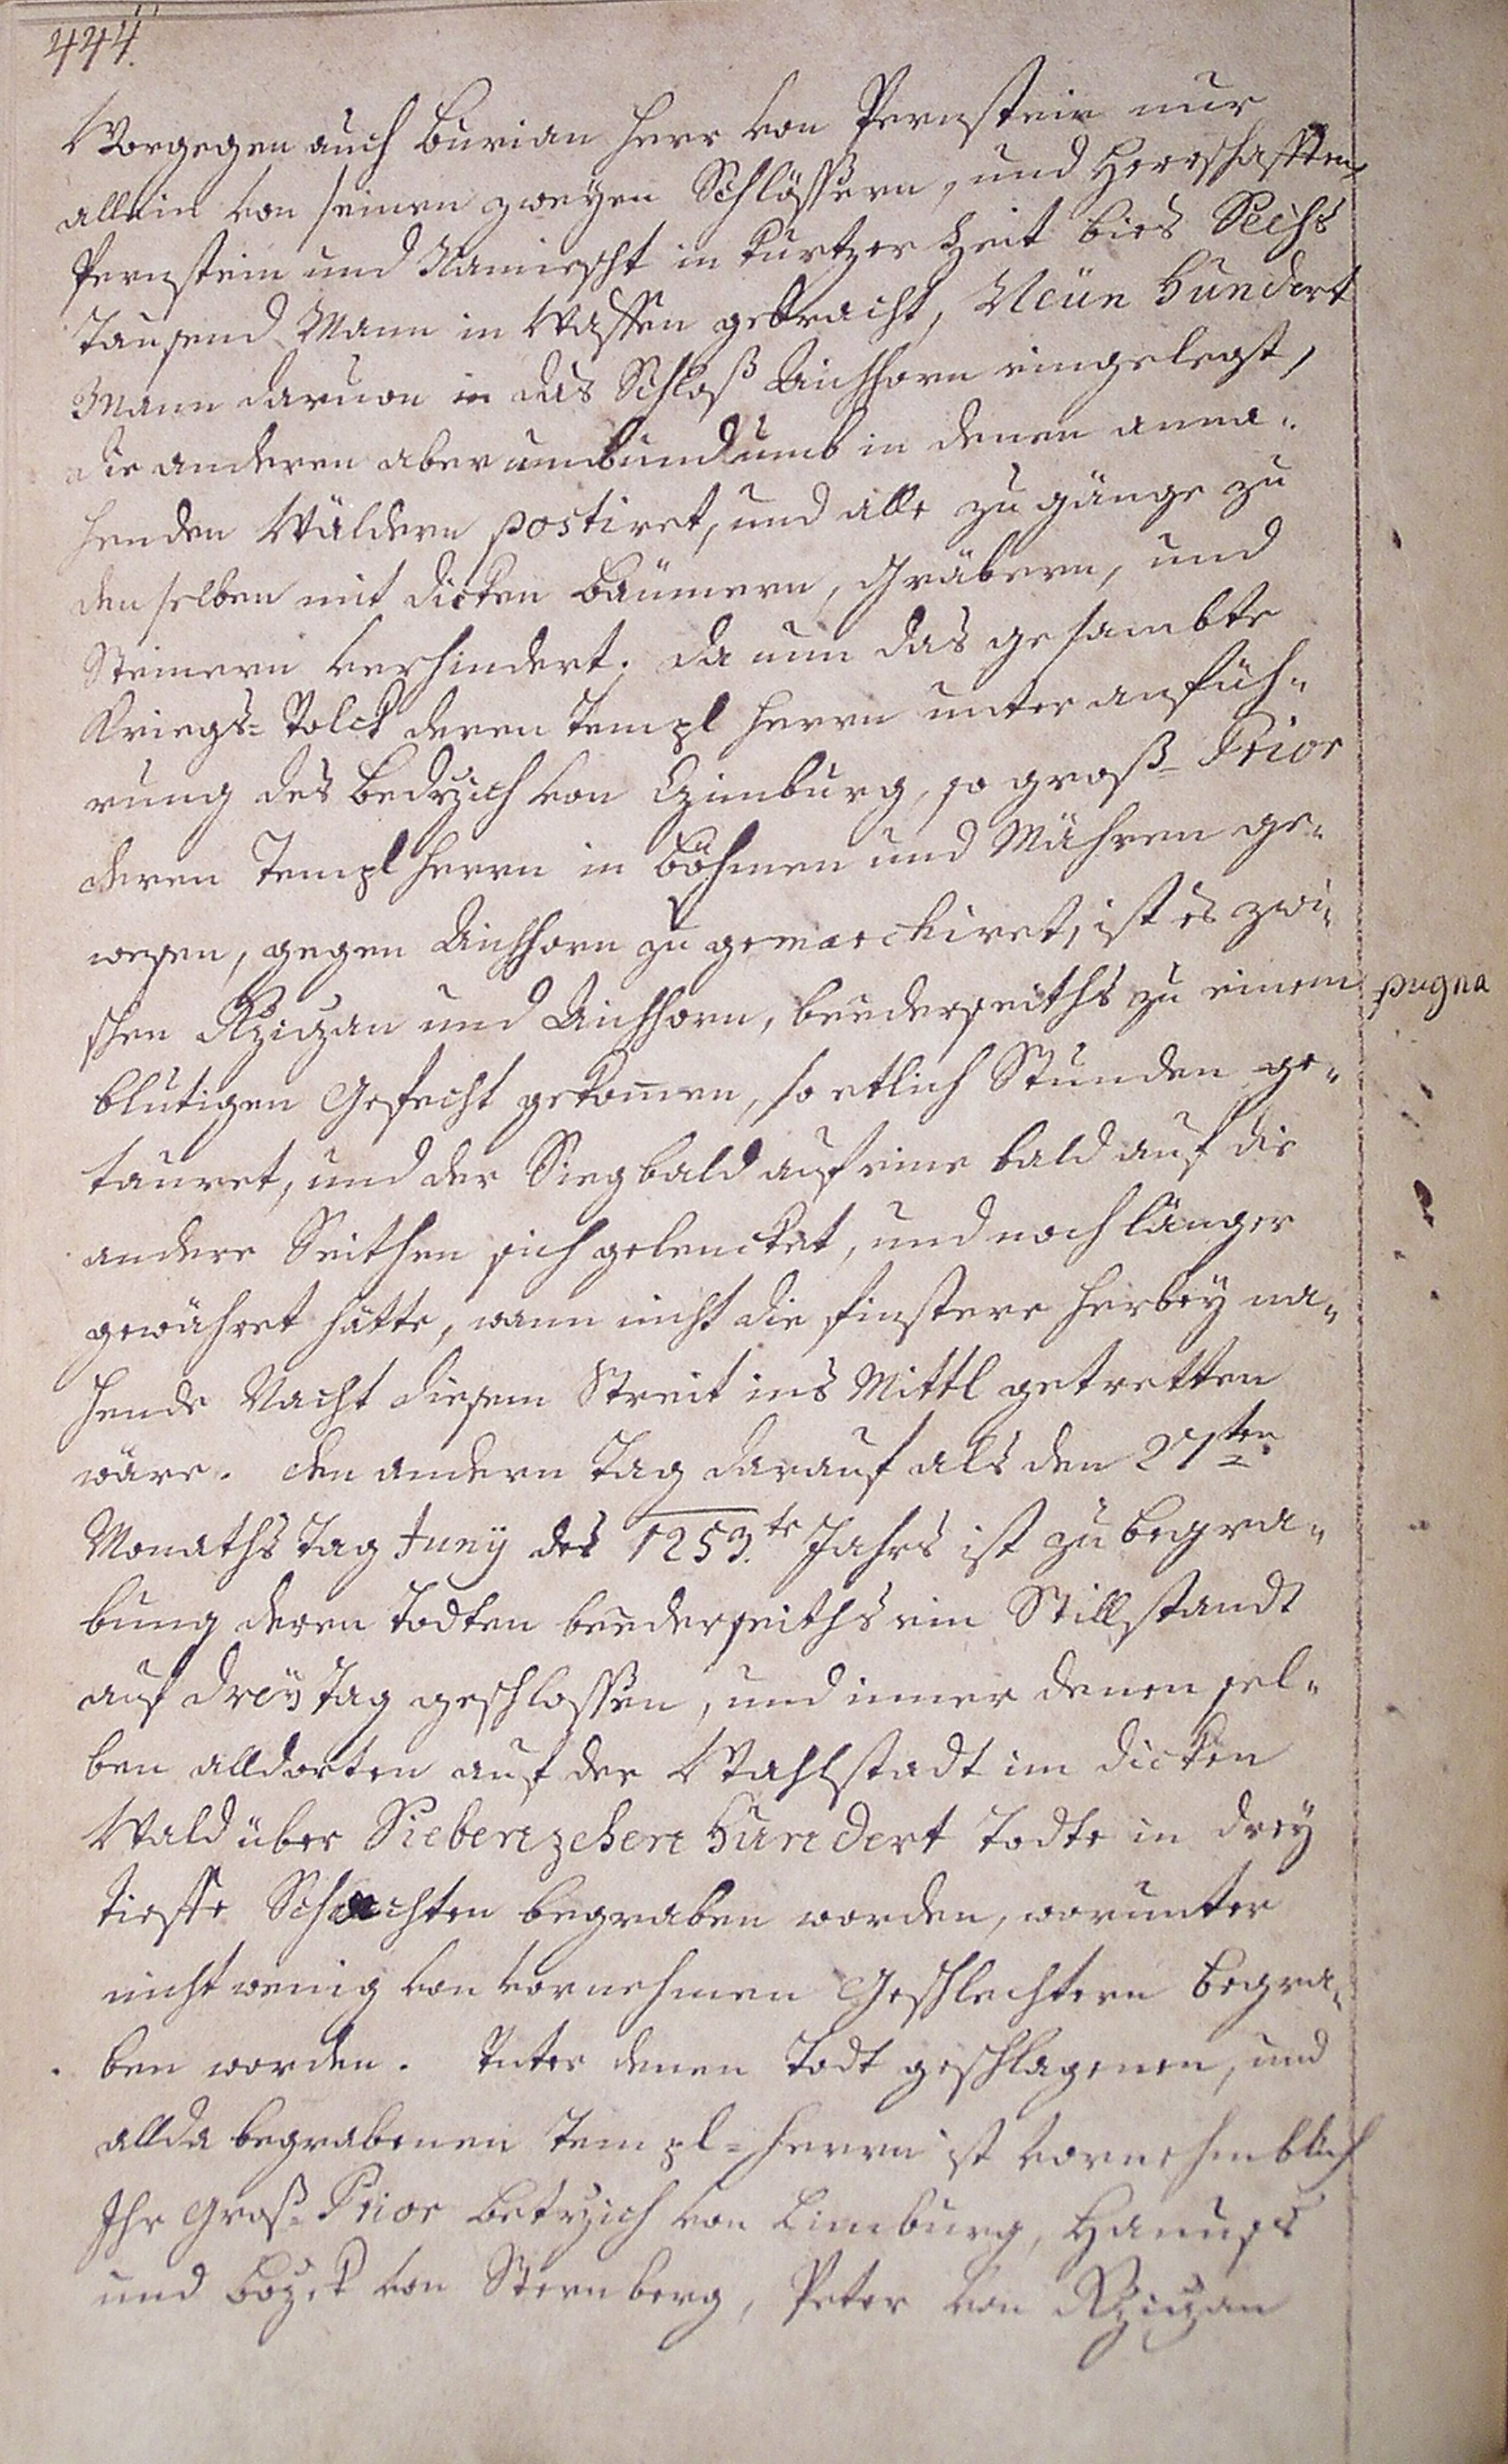 444.
Worgegen auch Burian Herr von Pernstein nur
allein von seinen zweyen Schlössern, und Herrschafften,
Pernstein und Namiescht in kurtzer Zeit bies Sechs
Tausend Mann in Waffen gebracht, Neün Hundert
Mann daruon in das Schloß Aichhorn eingelegt,
die anderen aber umbundumb in denen anna„
henden Wäldern postiret, und alle zu gänge zu
denselben mit dicken Bäumern, Gräbern, und
Steinern verhindert. Da nun das gesambte
Kriegs=Volck deren Templ Herrn unter anfüh„
rung des Bedrzich von Czimburg, so groß=Prior
deren Templ Herrn in Böhmen und Mähren ge„
wesen, gegen Aichhorn zu gemarchiret, ist es zwi„
schen Rziczan und Aichhorn, beederseiths zu einem
pugna
blutigen Gefecht gekom̅en, so etlich Stunden ge„
tauret, und der Sieg bald auf eine bald auf die
andere Seithen sich gelencket, und noch länger
gewähret hätte, wann nicht die finstere herbey na„
hende Nacht diesem Streit ins Mittl getretten
wäre. Den andern Tag darauf als den 27ten
Monaths Tag Juny des 1253.te Jahrs ist zu begra„
bung deren Todten beederseiths ein Stillstandt
auf drey Tag geschlossen, und inner denen sel„
ben alldorten auf der Wahlstadt im dicken
Wald über Siebenzehen Hundert Todte in drey
tieffe Schachten begraben worden, worunter
nicht wenig von vornehmen Geschlechtern begra„
ben worden. Unter denen Todt geschlagenen, und
allda begrabenen Templ=Herrn ist vornehmblich
Ihr Groß=Prior Betrzich von Limburg, Hanuss
und Bozek von Sternberg, Peter von Rziczan